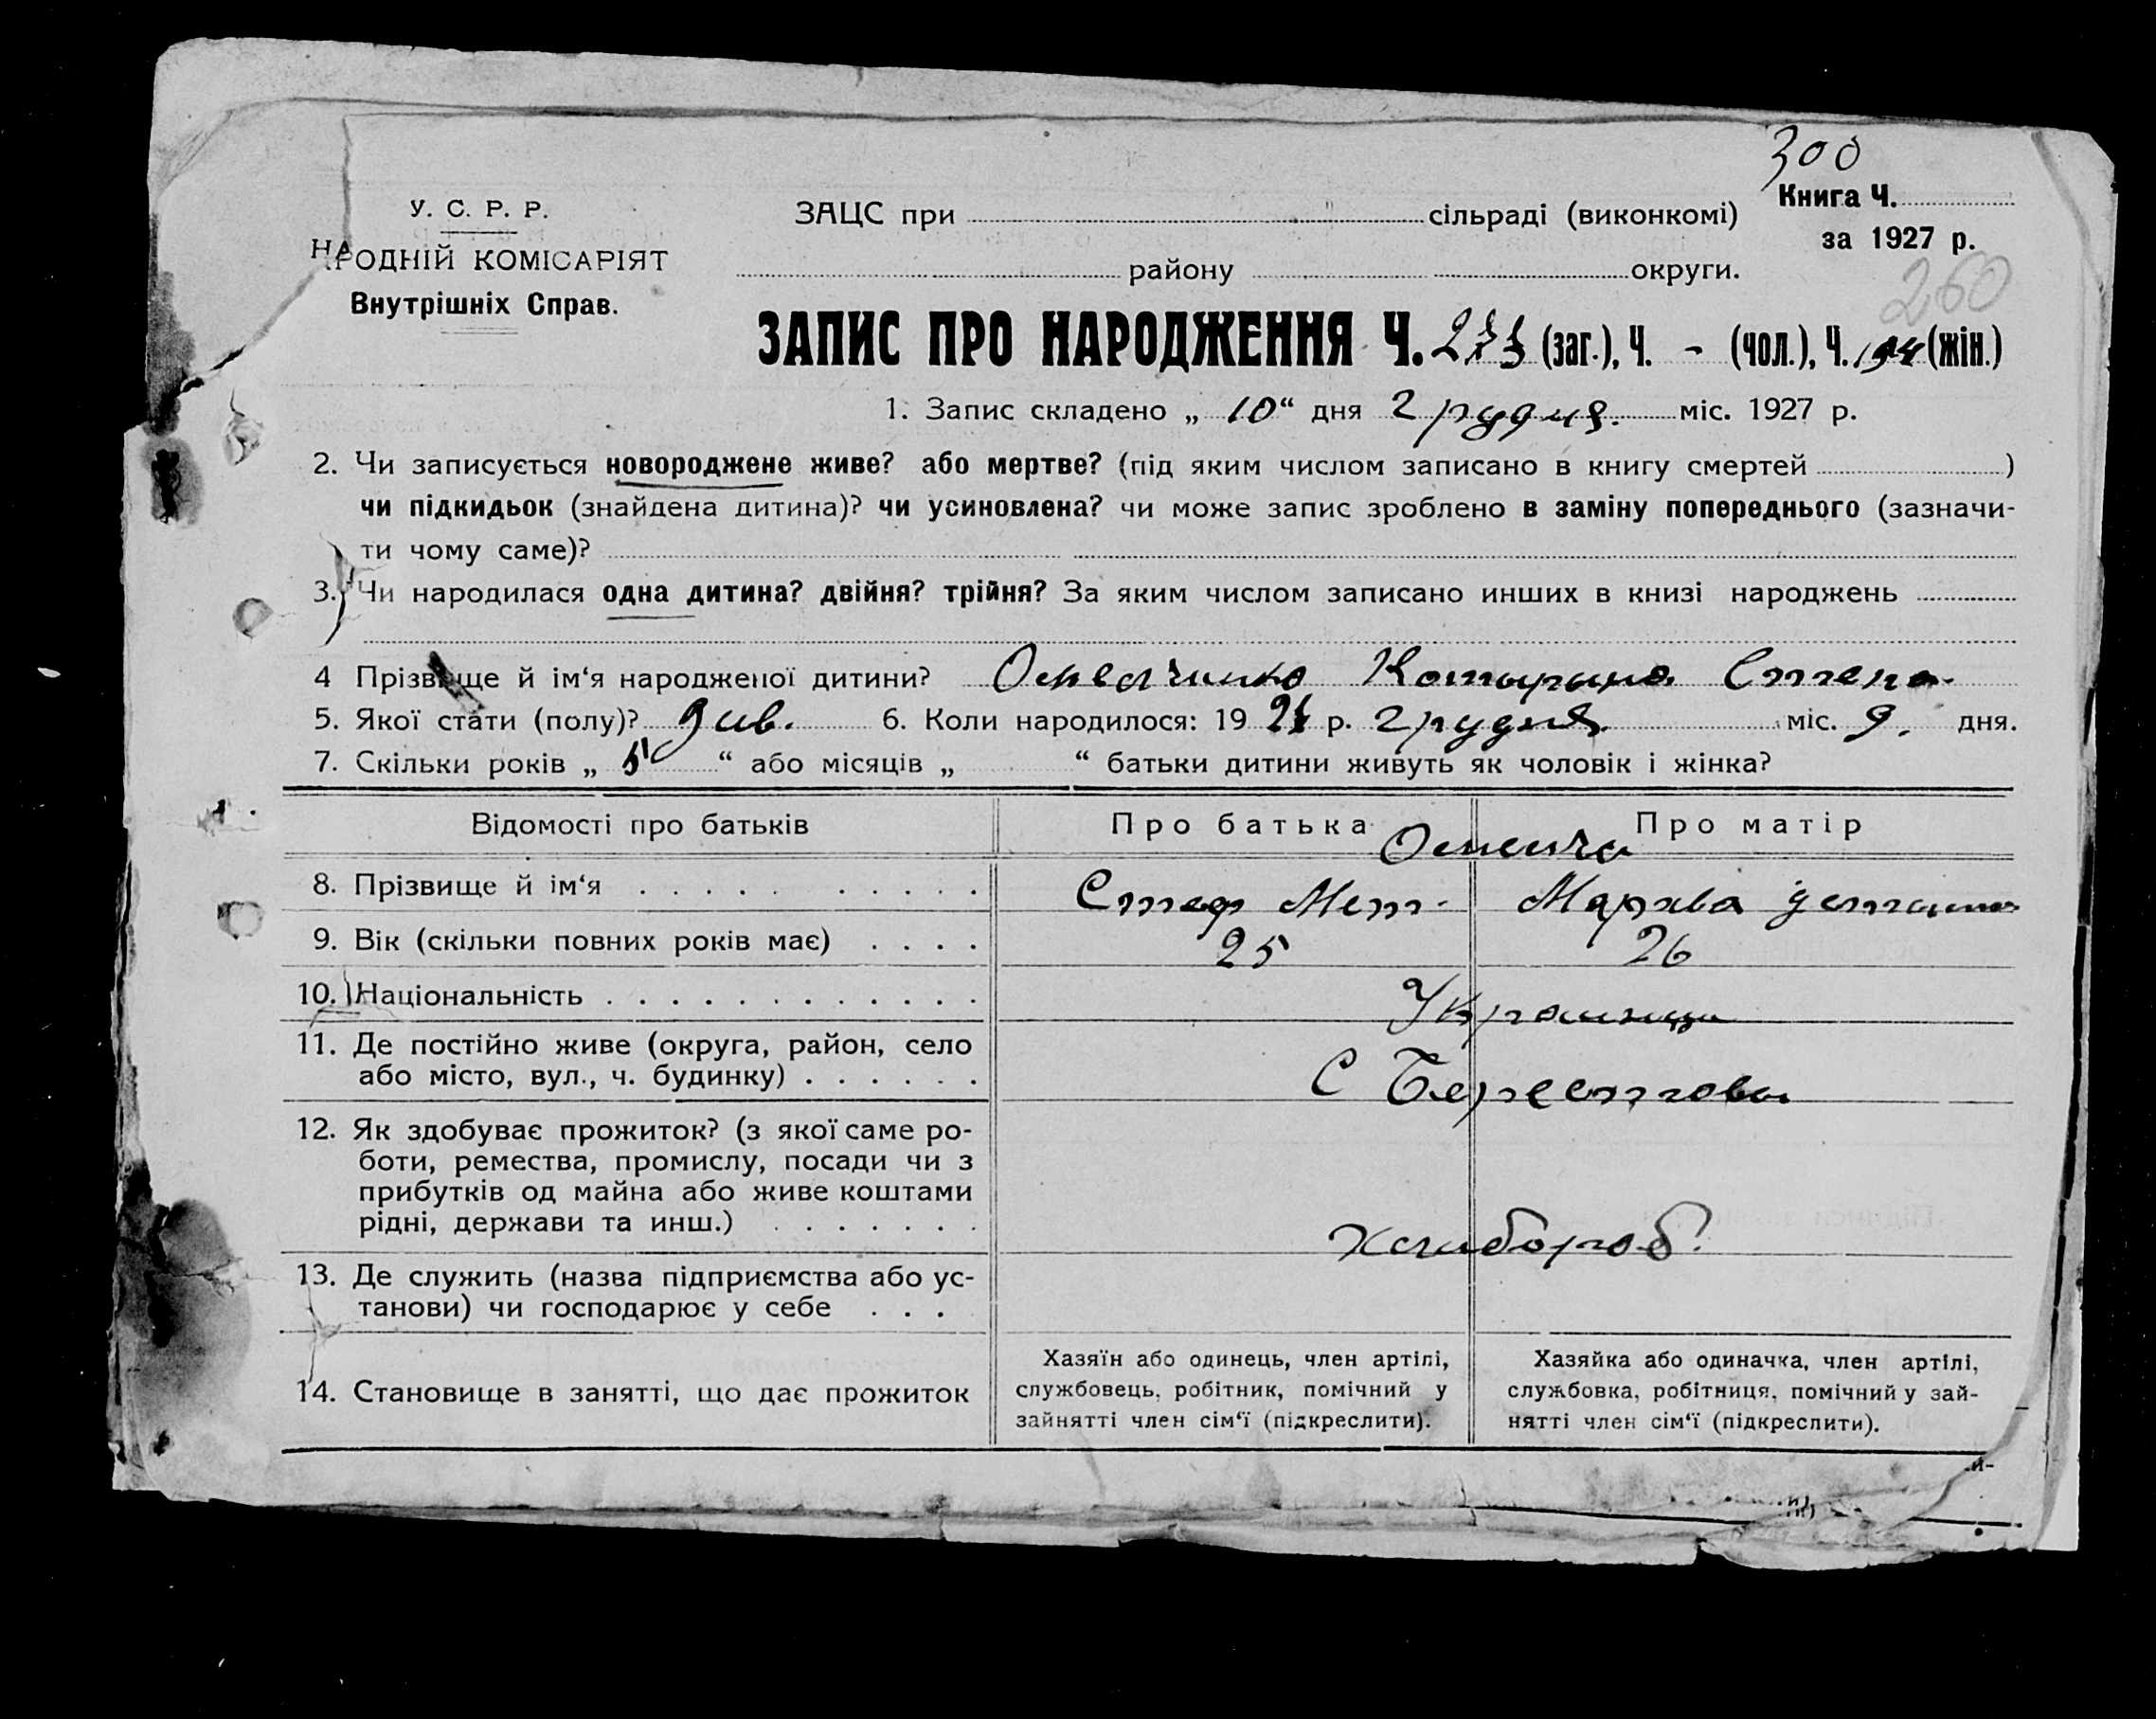 300
У. С. Р. Р.
НАРОДНІЙ КОМІСАРІЯТ
Внутрішніх Справ.
ЗАЦС при сільраді (виконкомі)
району округи.
Книга Ч.
за 1927 р.
260
ЗАПИС ПРО НАРОДЖЕННЯ Ч. (заг.), Ч. - (чол.), Ч. (жін.)
1. Запис складено „ 10“ дня грудня. міс. 1927 р.
2. Чи записується новороджене живе? або мертве? (під яким числом записано в книгу смертей )
чи підкидьок (знайдена дитина)? чи усиновлена? чи може запис зроблено в заміну попереднього (зазначи-
ти чому саме)?
3. Чи народилася одна дитина? двійня? трійня? За яким числом записано инших в книзі народжень
4 Прізвище й ім‘я народженої дитини? Катырына Степа-
5. Якої стати (полу)? див. 6. Коли народилося: 19 27 р. грудня міс. 9. дня.
7. Скільки років „ 5 “ або місяців „ “ батьки дитини живуть як чоловік і жінка?
Відомості про батьків Про батька Про матір
8. Прізвище й ім‘я Стеф
9. Вік (скільки повних років має) 25 26
10. Національність Украинци
11. Де постійно живе (округа, район, село
або місто, вул., ч. будинку) С Берестова
12. Як здобуває прожиток? (з якої саме ро-
боти, ремества, промислу, посади чи з
прибутків од майна або живе коштами
рідні, держави та инш.) Хлибороб
13. Де служить (назва підприємства або ус-
танови) чи господарює у себе
14. Становище в занятті, що дає прожиток
Хазяїн або одинець, член артілі,
службовець, робітник, помічний у
зайнятті член сім‘ї (підкреслити).
Хазяйка або одиначка, член артілі,
службовка, робітниця, помічний у зай-
нятті член сім‘ї (підкреслити).